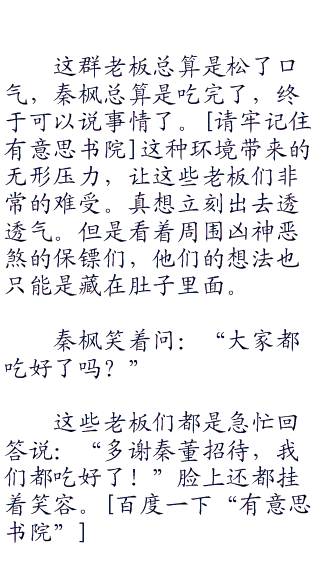 这群老板总算是松了口
气，秦枫总算是吃完了，终
于可以说事情了。[请牢记住
有意思书院]这种环境带来的
无形压力，让这些老板们非
常的难受。真想立刻出去透
透气。但是看着周围凶神恶
煞的保镖们，他们的想法也
只能是藏在肚子里面。
秦枫笑着问：“大家都
吃好了吗？”
这些老板们都是急忙回
答说：“多谢秦董招待，我
们都吃好了！”脸上还都挂
着笑容。[百度一下“有意思
书院”]